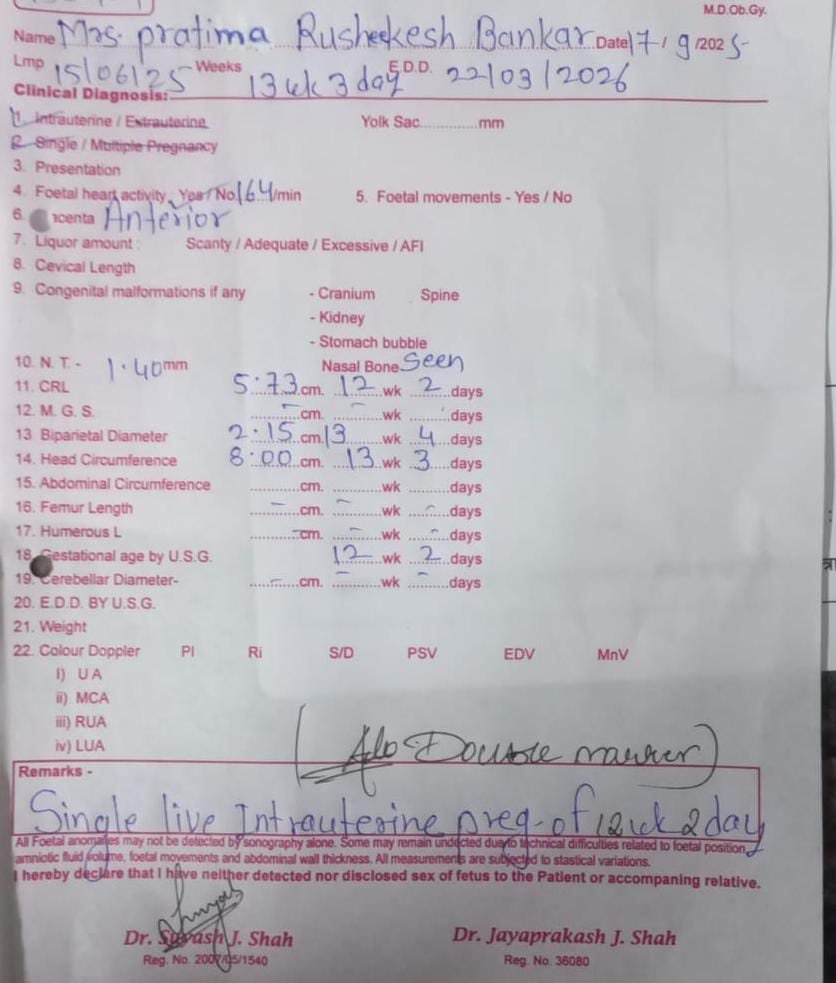 M.D.Ob.Gy.
Name Mrs. pratima Rusheekesh Bankar Date 17 / 9 /2025
Lmp 15/06/25 Weeks 13 wk 3 day E.D.D. 22/03/2026
Clinical Diagnosis:
1. Intrauterine / Extrauterine Yolk Sac..............mm
2. Single / Multiple Pregnancy
3. Presentation
4. Foetal heart activity Yes / No 164/min 5. Foetal movements - Yes / No
6. acenta Anterior
7. Liquor amount : Scanty / Adequate / Excessive / AFI
8. Cevical Length
9. Congenital malformations if any - Cranium Spine
- Kidney
- Stomach bubble
10. N. T. - 1.40 mm Nasal Bone Seen
11. CRL 5.73 cm. 12 wk 2 days
12. M. G. S. - cm. - wk days
13 Biparietal Diameter 2.15 cm. 13 wk 4 days
14. Head Circumference 8.00 cm. 13 wk 3 days
15. Abdominal Circumference ..........cm. ..........wk ........days
16. Femur Length - cm. - wk - days
17. Humerous L - cm. - wk - days
18. Gestational age by U.S.G. 12 wk 2 days
19. Cerebellar Diameter- - cm. - wk - days
20. E.D.D. BY U.S.G.
21. Weight
22. Colour Doppler PI Ri S/D PSV EDV MnV
i) U A
ii) MCA
iii) RUA
iv) LUA
Double marker)
Remarks -
Single live Intrauterine preg. of 12 wk 2 day
All Foetal anomalies may not be detected by sonography alone. Some may remain undected due to technical difficulties related to foetal position,
amniotic fluid volume, foetal movements and abdominal wall thickness. All measurements are subjected to stastical variations.
I hereby declare that I have neither detected nor disclosed sex of fetus to the Patient or accompaning relative.
Dr. Suvash J. Shah Dr. Jayaprakash J. Shah
Reg. No. 2007/05/1540 Reg. No. 36080